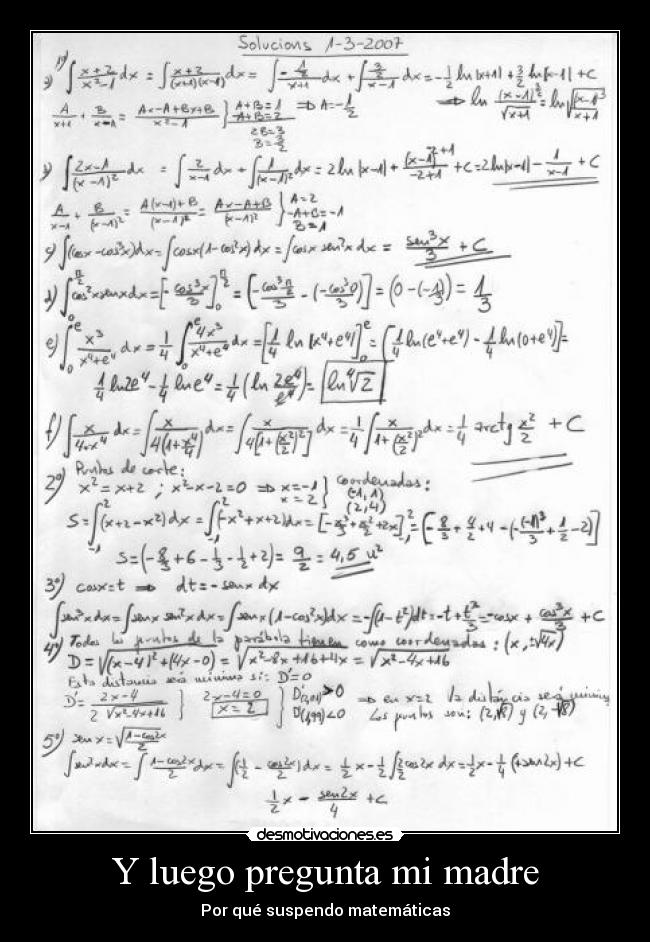 Solucions 1-3-2007
1º)
a) ∫ (x+2)/(x²-1) dx = ∫ (x+2)/((x+1)(x-1)) dx = ∫ (-1/2)/(x+1) dx + ∫ (3/2)/(x-1) dx = -1/2 ln|x+1| + 3/2 ln|x-1| + C
A/(x+1) + B/(x-1) = (Ax-A+Bx+B)/(x²-1) } A+B=1 ⇒ A=-1/2 ⇒ ln (x-1)^(3/2)/√(x+1) = ln √((x-1)³/(x+1))
-A+B=2
2B=3
B=3/2
b) ∫ (2x-1)/(x-1)² dx = ∫ 2/(x-1) dx + ∫ 1/(x-1)² dx = 2 ln|x-1| + (x-1)^(-2+1)/(-2+1) + C = 2 ln|x-1| - 1/(x-1) + C
A/(x-1) + B/(x-1)² = (A(x-1)+B)/(x-1)² = (Ax-A+B)/(x-1)² } A=2
-A+B=-1
B=1
c) ∫(cosx - cos³x)dx = ∫cosx(1-cos²x)dx = ∫cosx sen²x dx = sen³x/3 + C
d) ∫₀^(π/2) cos²x senx dx = [-cos³x/3]₀^(π/2) = [-cos³(π/2)/3 - (-cos³0/3)] = (0-(-1/3)) = 1/3
e) ∫₀^e x³/(x⁴+e⁴) dx = 1/4 ∫₀^e 4x³/(x⁴+e⁴) dx = [1/4 ln|x⁴+e⁴|]₀^e = [1/4 ln(e⁴+e⁴) - 1/4 ln(0+e⁴)] =
1/4 ln2e⁴ - 1/4 lne⁴ = 1/4 (ln 2e⁴/e⁴) = ln ⁴√2
f) ∫ x/(4+x⁴) dx = ∫ x/(4(1+x⁴/4)) dx = ∫ x/(4[1+(x²/2)²]) dx = 1/4 ∫ x/(1+(x²/2)²) dx = 1/4 arctg x²/2 + C
2º) Puntos de corte:
x² = x+2 ; x²-x-2=0 ⇒ x=-1 } coordenadas:
x=2 (-1,1)
(2,4)
S = ∫₋₁² (x+2-x²)dx = ∫₋₁² (-x²+x+2)dx = [-x³/3 + x²/2 + 2x]₋₁² = [-8/3 + 4/2 + 4 - (-(-1)³/3 + 1/2 - 2)]
S = (-8/3 + 6 - 1/3 - 1/2 + 2) = 9/2 = 4,5 u²
3º) cosx=t ⇒ dt=-senx dx
∫sen³x dx = ∫senx sen²x dx = ∫senx(1-cos²x)dx = -∫(1-t²)dt = -t + t³/3 = -cosx + cos³x/3 + C
4º) Todos los puntos de la parábola tienen como coordenadas: (x, ±√4x)
D = √((x-4)²+(4x-0)) = √(x²-8x+16+4x) = √(x²-4x+16)
Esta distancia será mínima si: D'=0
D' = (2x-4)/(2√(x²-4x+16)) } 2x-4=0 } D'(2,01)>0 ⇒ en x=2 la distancia será mínima
x=2 D'(1,99)<0 Los puntos son: (2,√8) y (2,-√8)
5º) senx = √((1-cos2x)/2)
∫sen²x dx = ∫ (1-cos2x)/2 dx = ∫(1/2 - cos2x/2)dx = 1/2 x - 1/2 ∫ 2/2 cos2x dx = 1/2 x - 1/4 (+sen2x) + C
1/2 x - sen2x/4 + C
desmotivaciones.es
Y luego pregunta mi madre
Por qué suspendo matemáticas